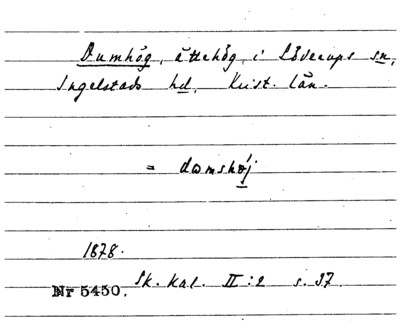 Dumhög, ättehög, i Löderups sn,
Ingelstads hd, Krist. län.
= damshøj
1878.
Sk. Kal. II:2 s. 37.
Nr 5450.